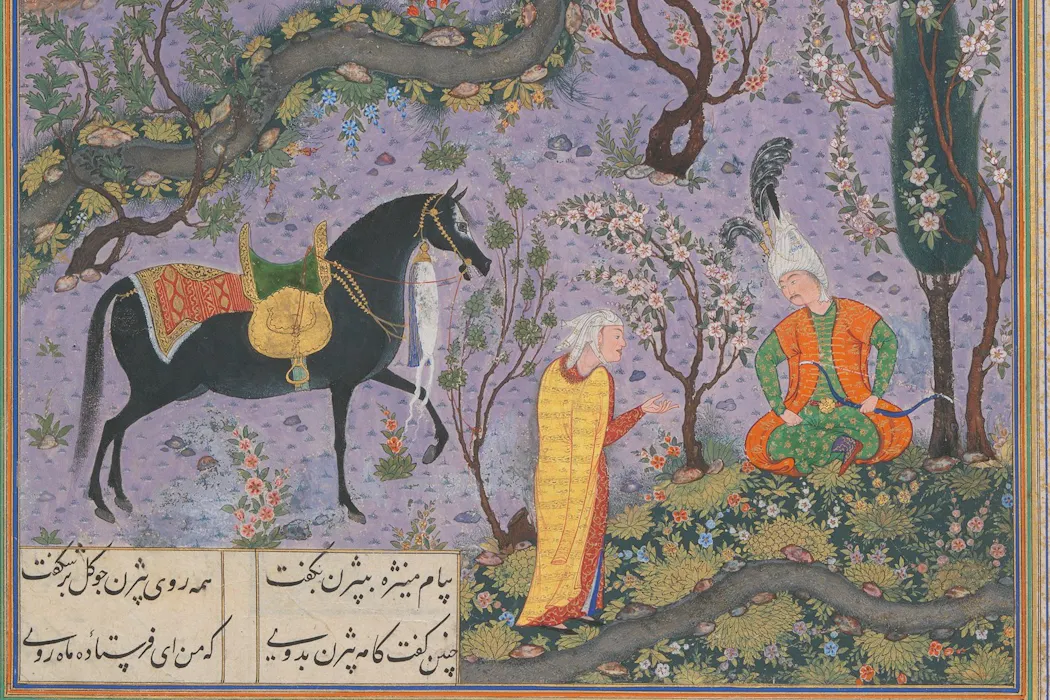 پیام منیژه ببیژن بگفت همه روی بیژن چو گل بر شکفت
چنین گفت کامه بیژن بدوی که من ای فرستادهٔ ماه روی